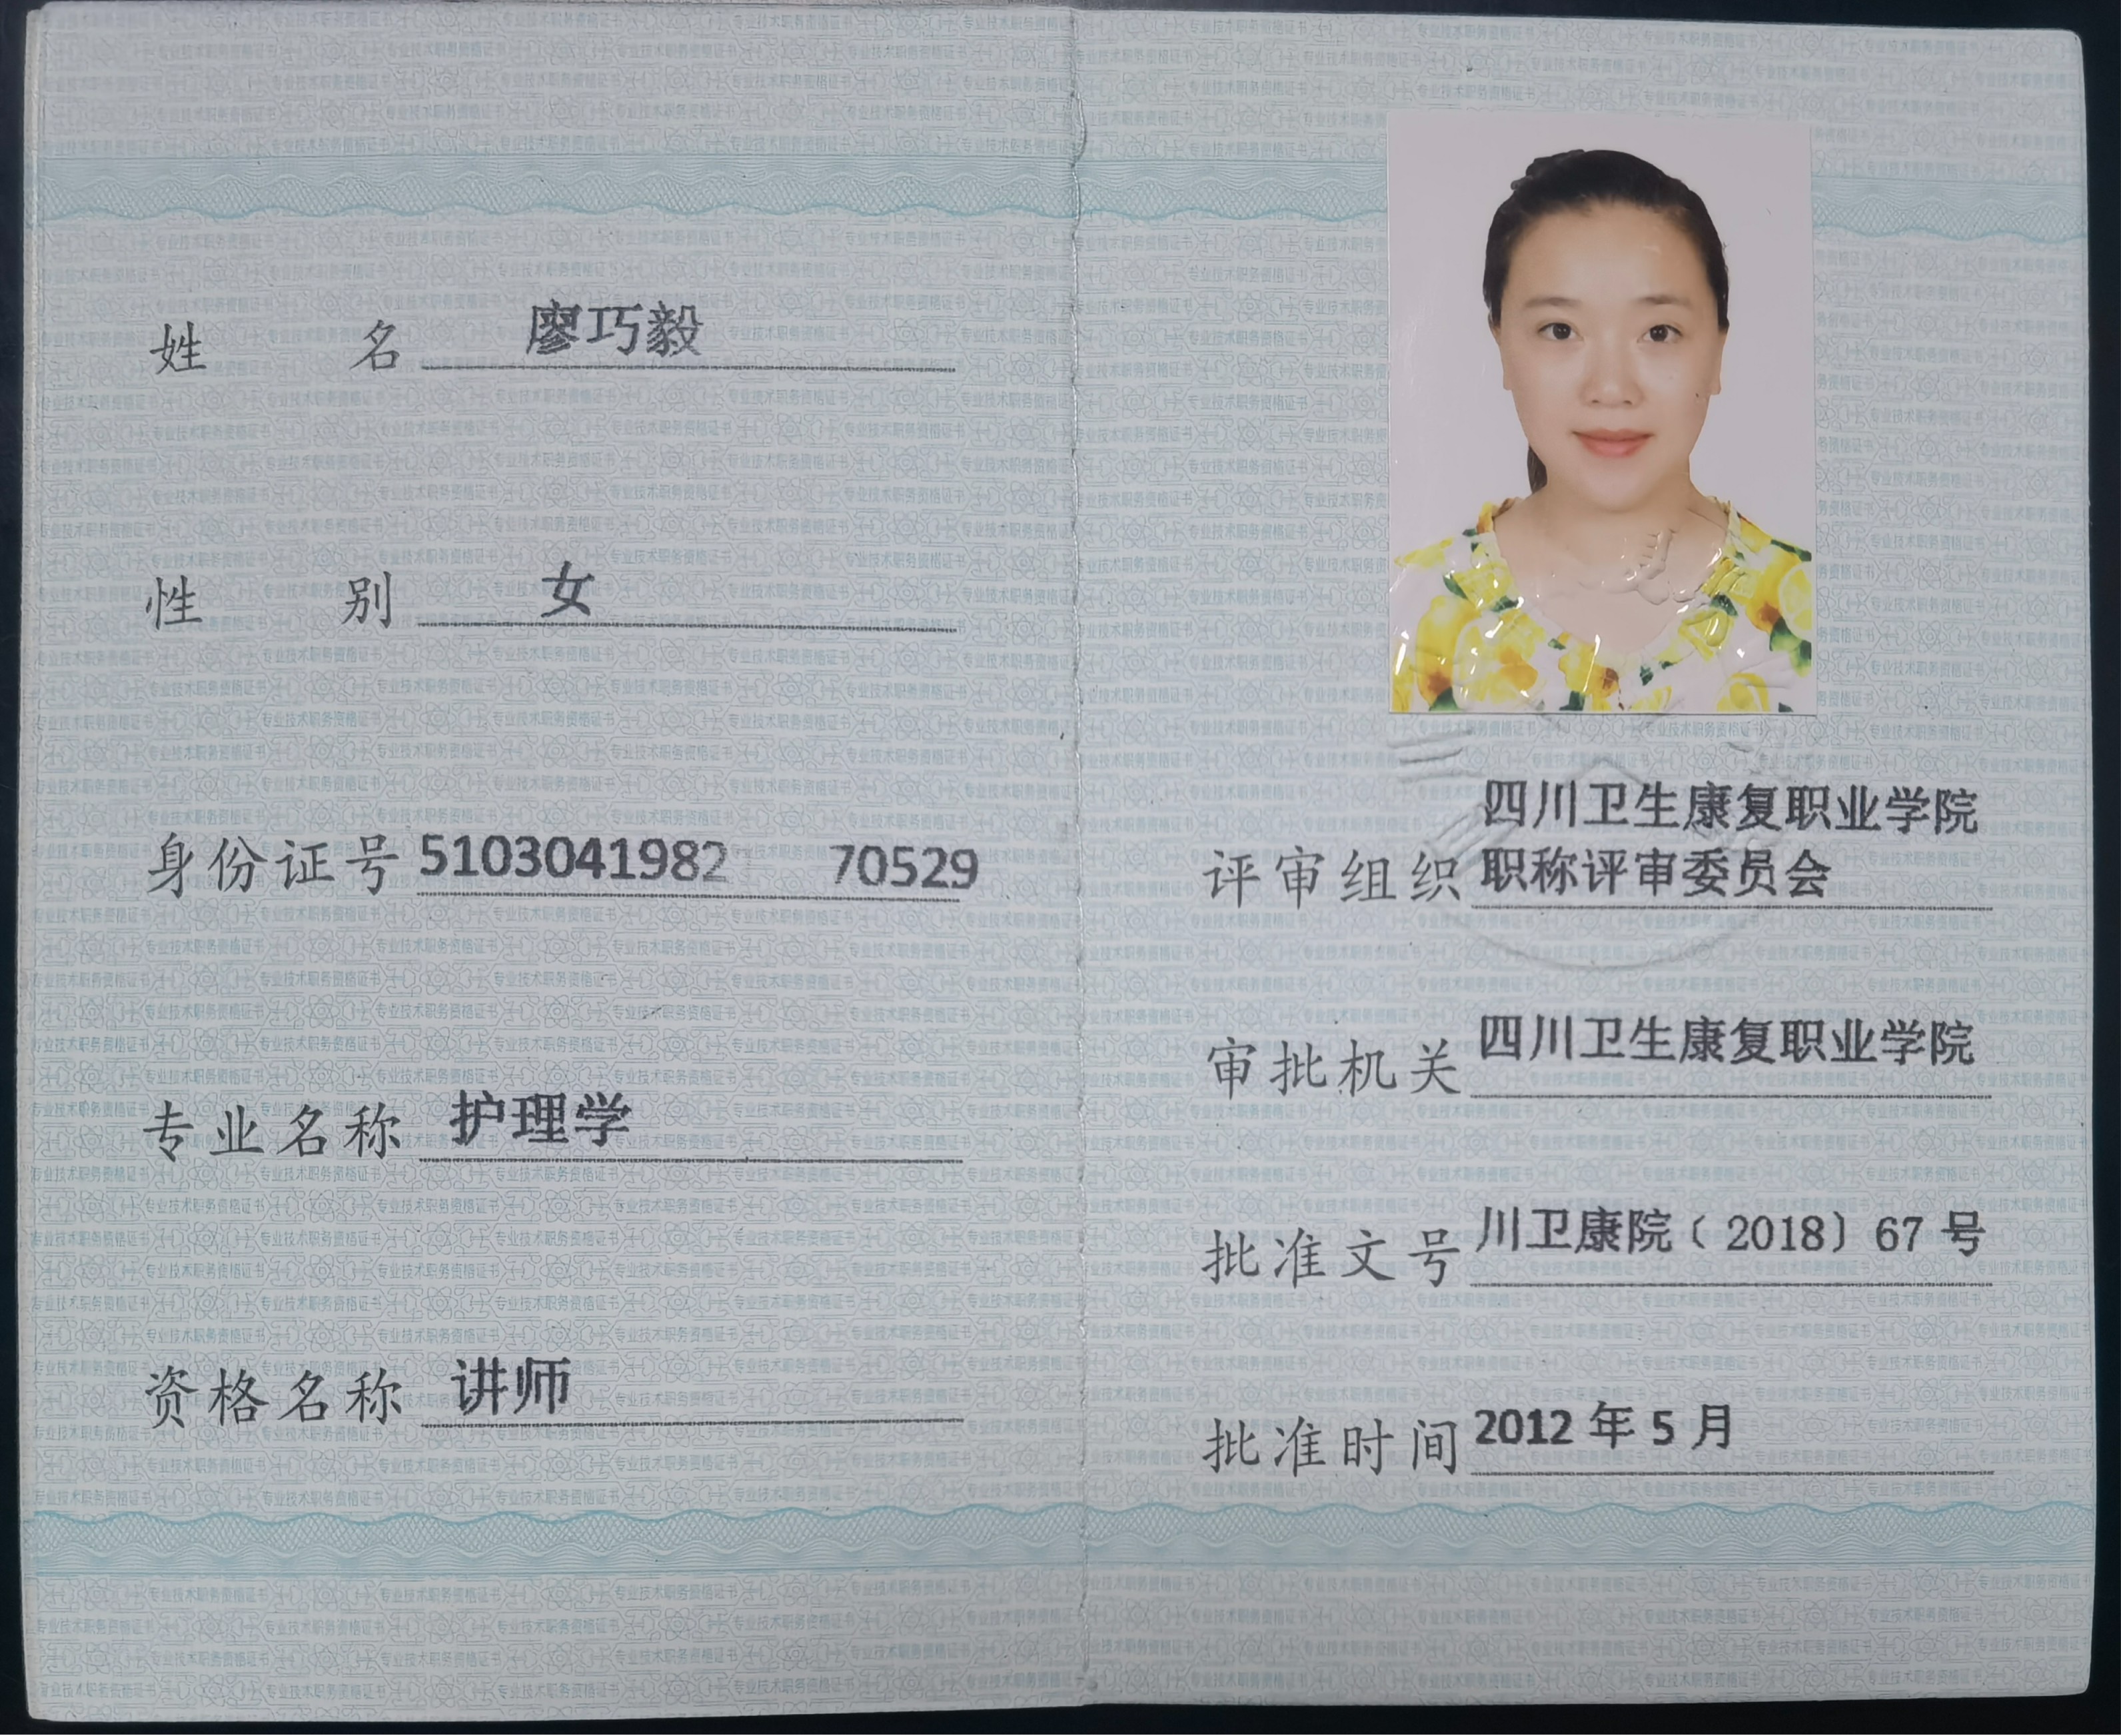 姓名 廖巧毅
性别 女
身份证号 5103041982 70529
专业名称 护理学
资格名称 讲师
四川卫生康复职业学院
评审组织 职称评审委员会
审批机关 四川卫生康复职业学院
批准文号 川卫康院﹝2018﹞67号
批准时间 2012年5月